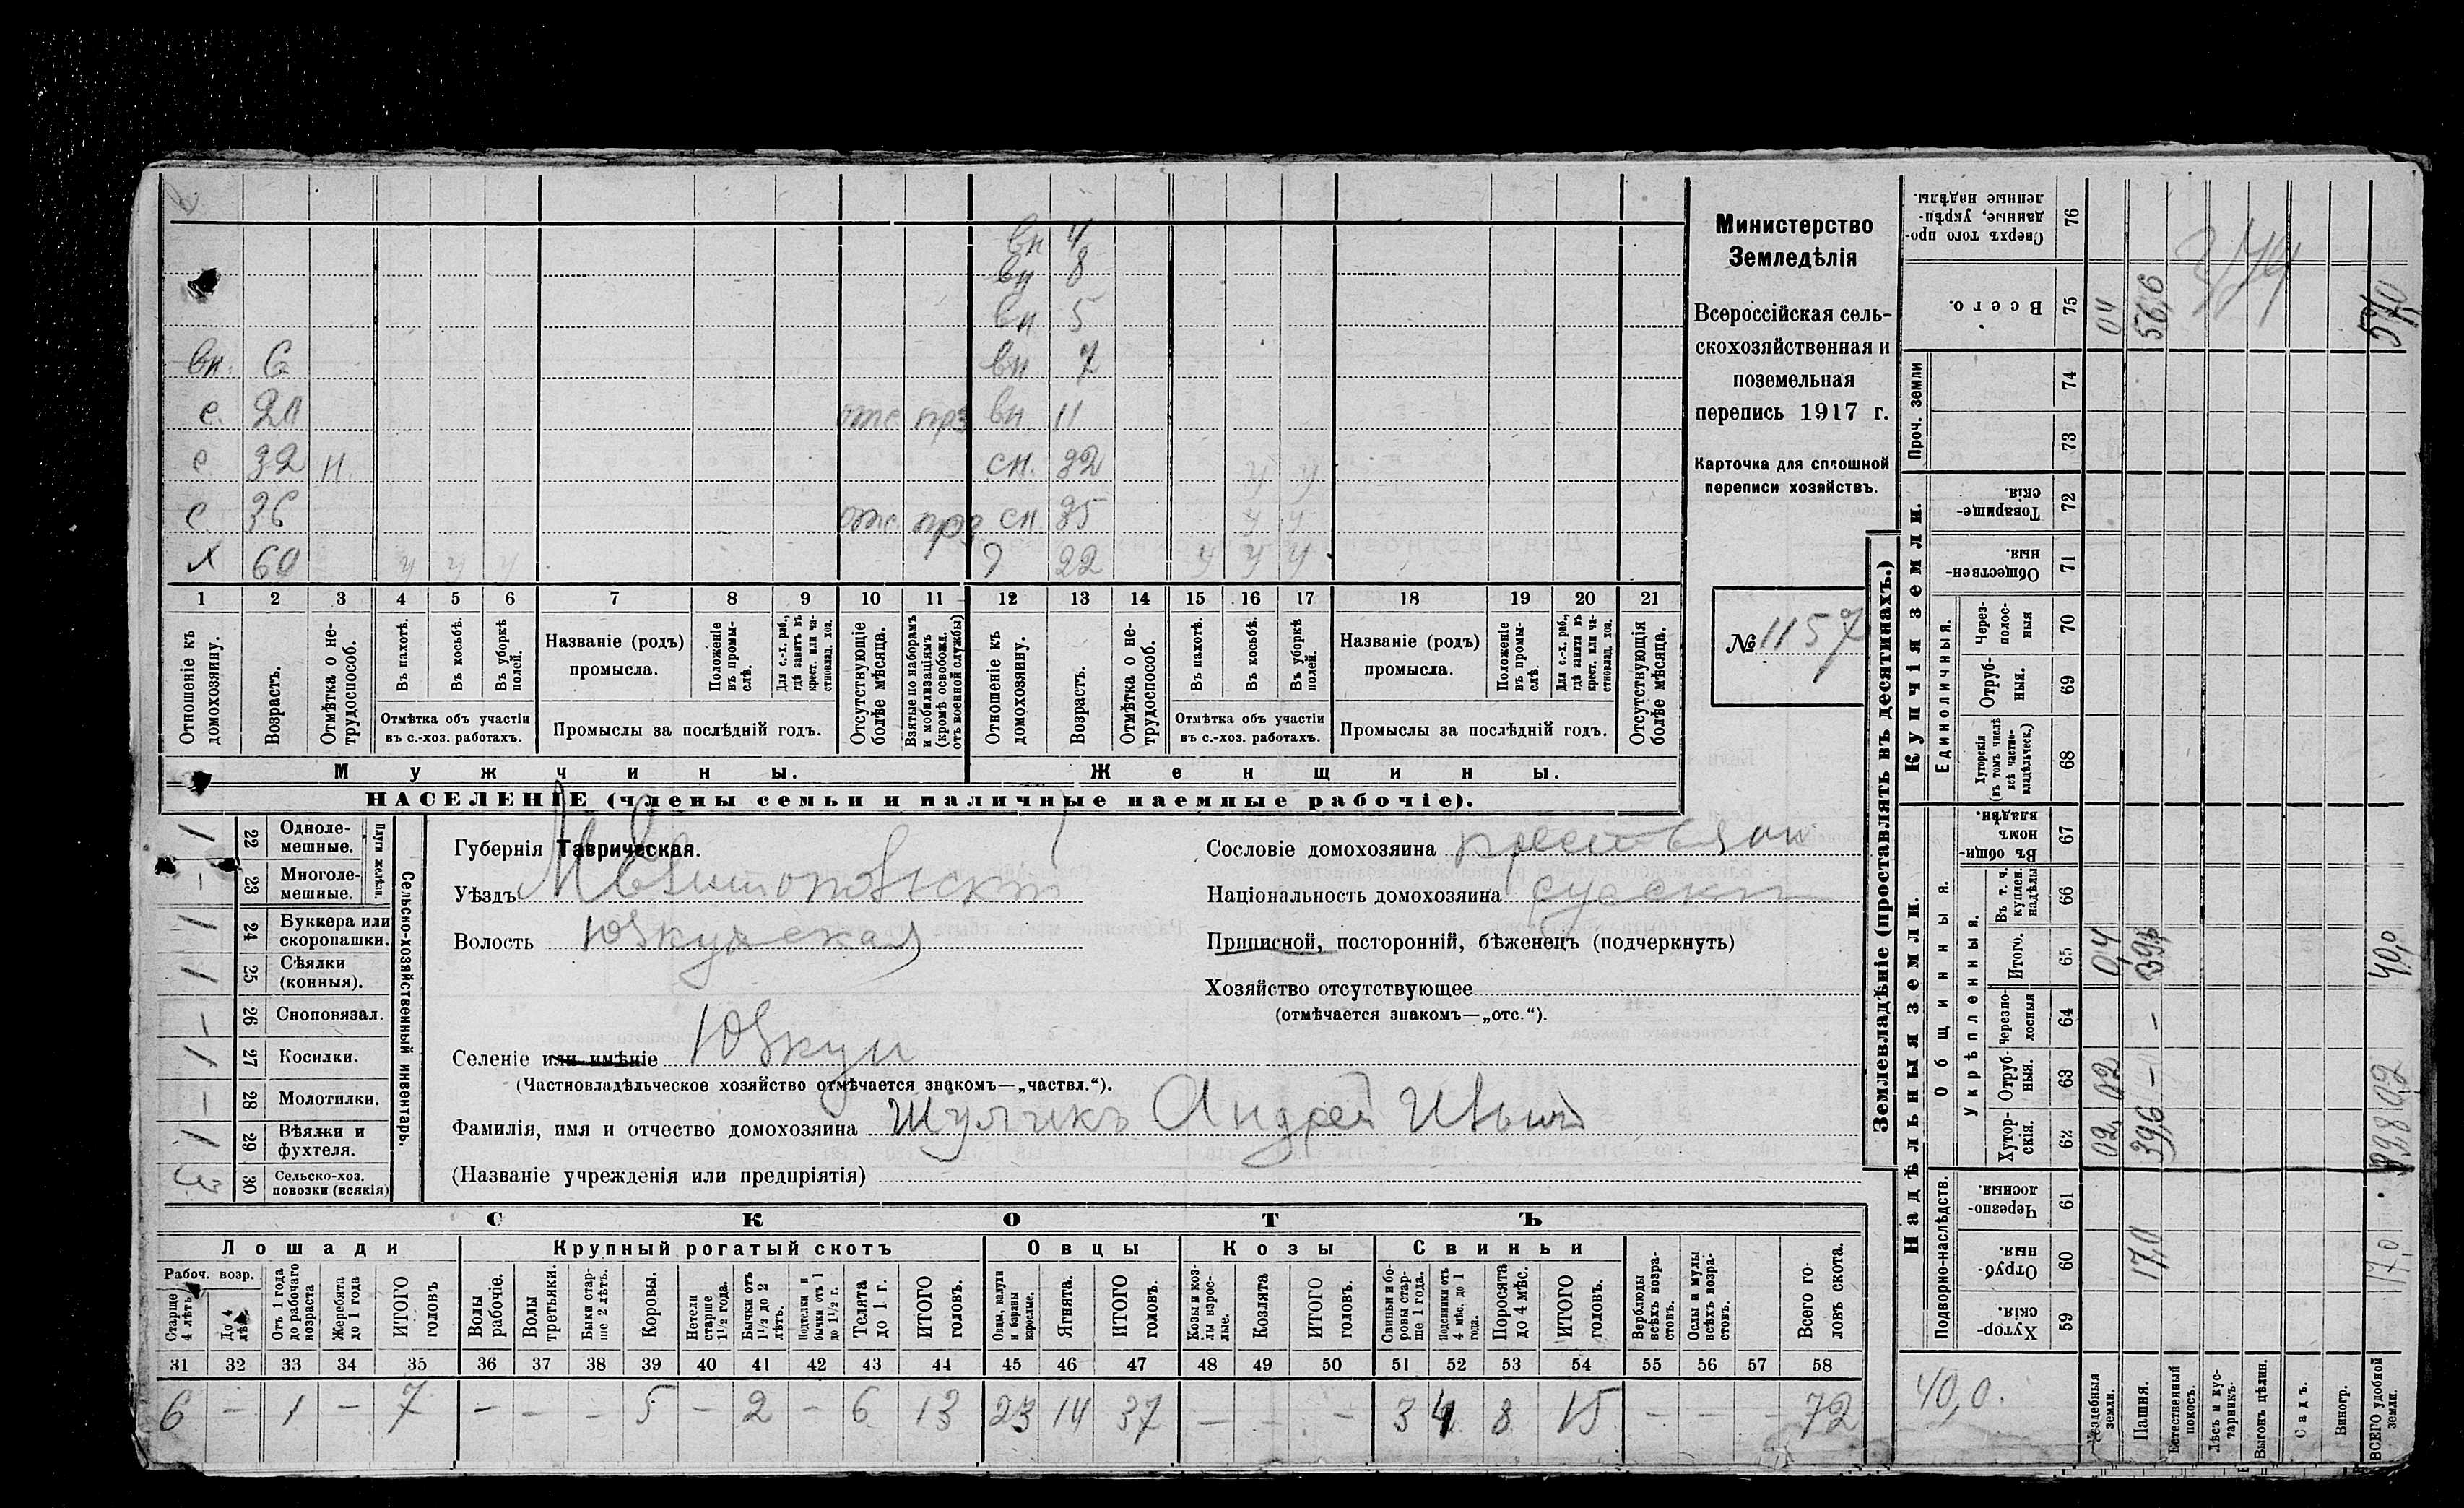 вн 4
вн 8
вн 5
вн. 6 вн 7
с. 20 отс прз вн 11
с 32 н. сн. 32 у у
с 36 отс прз сн. 35 у у
х 60 у у у 9 22 у у у
1 2 3 4 5 6 7 8 9 10 11 12 13 14 15 16 17 18 19 20 21
Отношеніе къ домохозяину.
Возрастъ.
Отмѣтка о не-трудоспособ.
Въ пахотѣ.
Въ косьбѣ.
Въ уборкѣ полей.
Отмѣтка объ участіи
въ с.-хоз. работахъ.
Названіе (родъ)
промысла.
Положеніе въ промы-слѣ.
Для с.-х. раб., гдѣ занятъ въ крест. или ча-стновлад. хоз.
Промыслы за послѣдній годъ.
Отсутствующіе болѣе мѣсяца.
Взятые по наборамъ и мобилизаціямъ (кромѣ освобожд. отъ военной службы)
Отношеніе къ домохозяину.
Возрастъ.
Отмѣтка о не-трудоспособ.
Въ пахотѣ.
Въ косьбѣ.
Въ уборкѣ полей.
Отмѣтка объ участіи
въ с.-хоз. работахъ.
Названіе (родъ)
промысла.
Положеніе въ промы-слѣ.
Для с.-х. раб., гдѣ занятъ въ крест. или ча-стновлад. хоз.
Промыслы за послѣдній годъ.
Отсутствующія болѣе мѣсяца.
Мужчины. Женщины.
НАСЕЛЕНІЕ (члены семьи и наличные наемные рабочіе).
Министерство
Земледѣлія
Всероссійская сель-
скохозяйственная и
поземельная
перепись 1917 г.
Карточка для сплошной
переписи хозяйствъ.
№ 1157
Сельско-хозяйственный инвентарь.
Плуги желѣзн.
1 22 Одноле-мешные.
— 23 Многоле-мешные.
1 24 Буккера или скоропашки.
1 25 Сѣялки (конныя).
— 26 Сноповязал.
1 27 Косилки.
— 28 Молотилки.
1 29 Вѣялки и фухтеля.
3 30 Сельско-хоз. повозки (всякія)
Губернія Таврическая.
Уѣздъ Мелитопольскій
Волость Юзкуйская
Селеніе или имѣніе Юзкуи
(Частновладѣльческое хозяйство отмѣчается знакомъ—„частвл.“).
Фамилія, имя и отчество домохозяина Шульжикъ Андрей Ивын
(Названіе учрежденія или предпріятія)
Сословіе домохозяина крестьянин
Національность домохозяина русскій
Приписной, посторонній, бѣженецъ (подчеркнуть)
Хозяйство отсутствующее
(отмѣчается знакомъ—„отс.“).
СКОТЪ
Лошади Крупный рогатый скотъ Овцы Козы Свиньи
Рабоч. возр.
Старше 4 лѣтъ
До 4 лѣтъ
Отъ 1 года до рабочаго возраста
Жеребята до 1 года
ИТОГО головъ
Волы рабочіе.
Волы третьяки.
Быки стар-ше 2 лѣтъ.
Коровы.
Нетели старше 1½ года.
Бычки отъ 1½ до 2 лѣтъ.
Подтелки и бычки отъ 1 до 1½ г.
Телята до 1 г.
ИТОГО головъ.
Овцы, валухи и бараны взрослые.
Ягнята.
ИТОГО головъ.
Козы и коз-лы взрос-лые.
Козлята
ИТОГО головъ.
Свиньи и бо-ровы стар-ше 1 года.
Подсвинки отъ 4 мѣс. до 1 года.
Поросята до 4 мѣс.
ИТОГО головъ.
Верблюды всѣхъ возра-стовъ.
Ослы и мулы всѣхъ возра-стовъ.
Всего го-ловъ скота.
31 32 33 34 35 36 37 38 39 40 41 42 43 44 45 46 47 48 49 50 51 52 53 54 55 56 57 58
6 — 1 — 7 — — — 5 — 2 — 6 13 23 14 37 — — — 3 4 8 15 — — — 72
Землевладѣніе (проставлять въ десятинахъ.)
Надѣльныя земли. Купчія земли. Проч. земли
Подворно-наслѣдств. Общинныя. Единоличныя.
Укрѣпленныя.
Хутор-скія. 59
Отруб-ныя. 60
Черезпо-лосныя. 61
Хутор-скія. 62
Отруб-ныя. 63
Черезпо-лосныя 64
Итого. 65
Въ т. ч. куплен. надѣлы 66
Въ общин-номъ владѣн. 67
Хуторскія (въ томъ числѣ всѣ частно-владѣльческ.) 68
Отруб-ныя. 69
Через-полос-ныя 70
Обществен-ныя. 71
Товарище-скія. 72
73
74
Всего. 75
Сверхъ того про-данные, укрѣп-ленные надѣлы. 76
40,0.
Усадебныя земли. 02 02 0,4 04
Пашня. 17,0 39,6 — — 39,6 56,6
Естественный покосъ.
Лѣсъ и кус-тарникъ.
Выгонъ цѣлин.
Садъ.
Виногр.
ВСЕГО удобной земли. 17,0 39,8 0,2 40,0 57,0